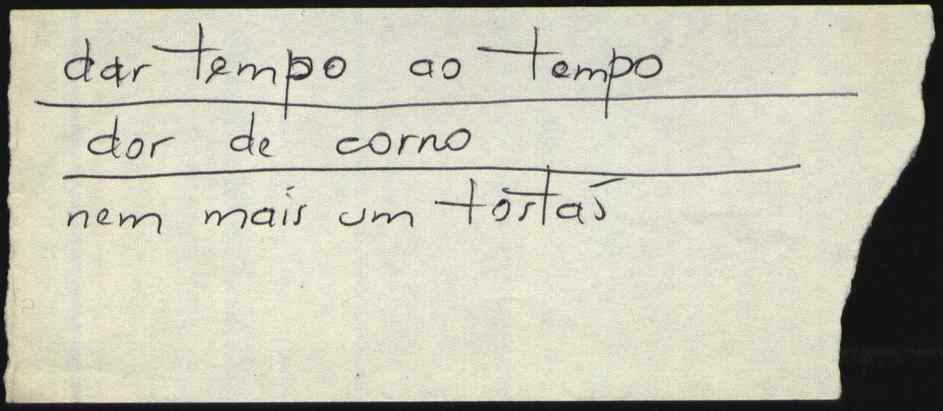 dar tempo ao tempo
dor de corno
nem mais um tostão